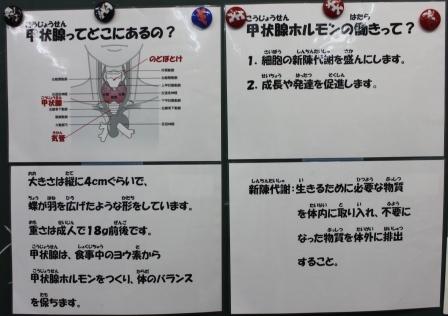 甲状腺ってどこにあるの？
のどぼとけ
甲状腺
気管
大きさは縦に4cmぐらいで、
蝶が羽を広げたような形をしています。
重さは成人で18g前後です。
甲状腺は、食事中のヨウ素から
甲状腺ホルモンをつくり、体のバランス
を保ちます。
甲状腺ホルモンの働きって？
1. 細胞の新陳代謝を盛んにします。
2. 成長や発達を促進します。
新陳代謝：生きるために必要な物質
を体内に取り入れ、不要に
なった物質を体外に排出
すること。